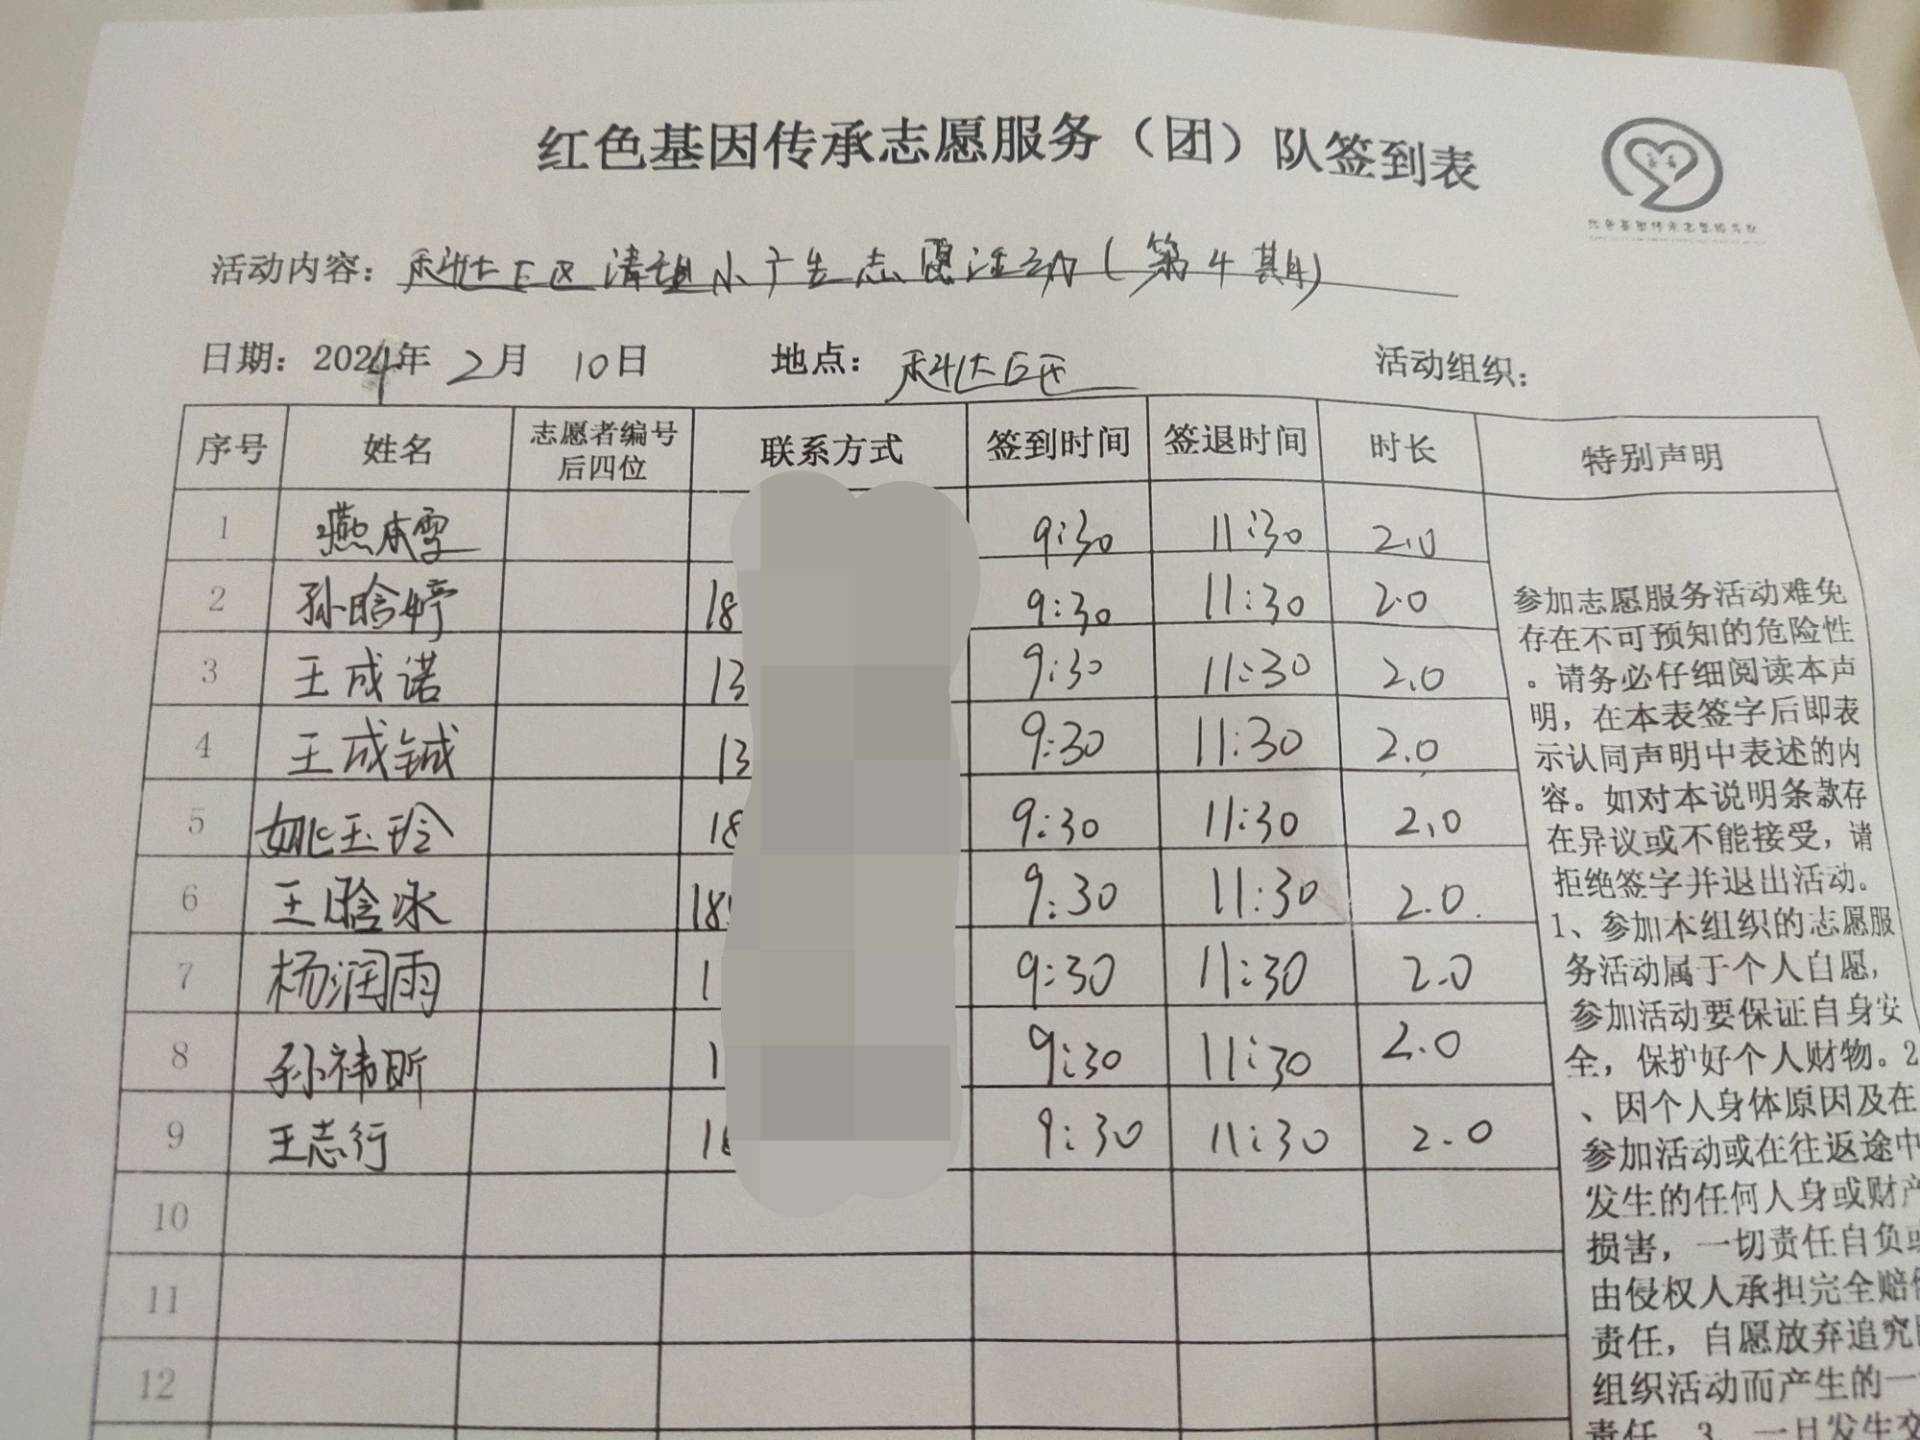 红色基因传承志愿服务（团）队签到表
活动内容：科技E区清理小广告志愿活动（第4期）
日期：2024年 2月 10日 地点：科技E区 活动组织：
序号 姓名 志愿者编号后四位 联系方式 签到时间 签退时间 时长 特别声明
1 9:30 11:30 2.0
2 孙晗婷 18 9:30 11:30 2.0
3 王成诺 13 9:30 11:30 2.0
4 王成铖 13 9:30 11:30 2.0
5 姚玉玲 18 9:30 11:30 2.0
6 王晗冰 18 9:30 11:30 2.0
7 杨润雨 1 9:30 11:30 2.0
8 孙祎昕 1 9:30 11:30 2.0
9 王志行 18 9:30 11:30 2.0
10
11
12
参加志愿服务活动难免
存在不可预知的危险性
。请务必仔细阅读本声
明，在本表签字后即表
示认同声明中表述的内
容。如对本说明条款存
在异议或不能接受，请
拒绝签字并退出活动。
1、参加本组织的志愿服
务活动属于个人自愿，
参加活动要保证自身安
全，保护好个人财物。2
、因个人身体原因及在
参加活动或在往返途中
发生的任何人身或财产
损害，一切责任自负或
由侵权人承担完全赔偿
责任，自愿放弃追究
组织活动而产生的一
责任。3、一旦发生交